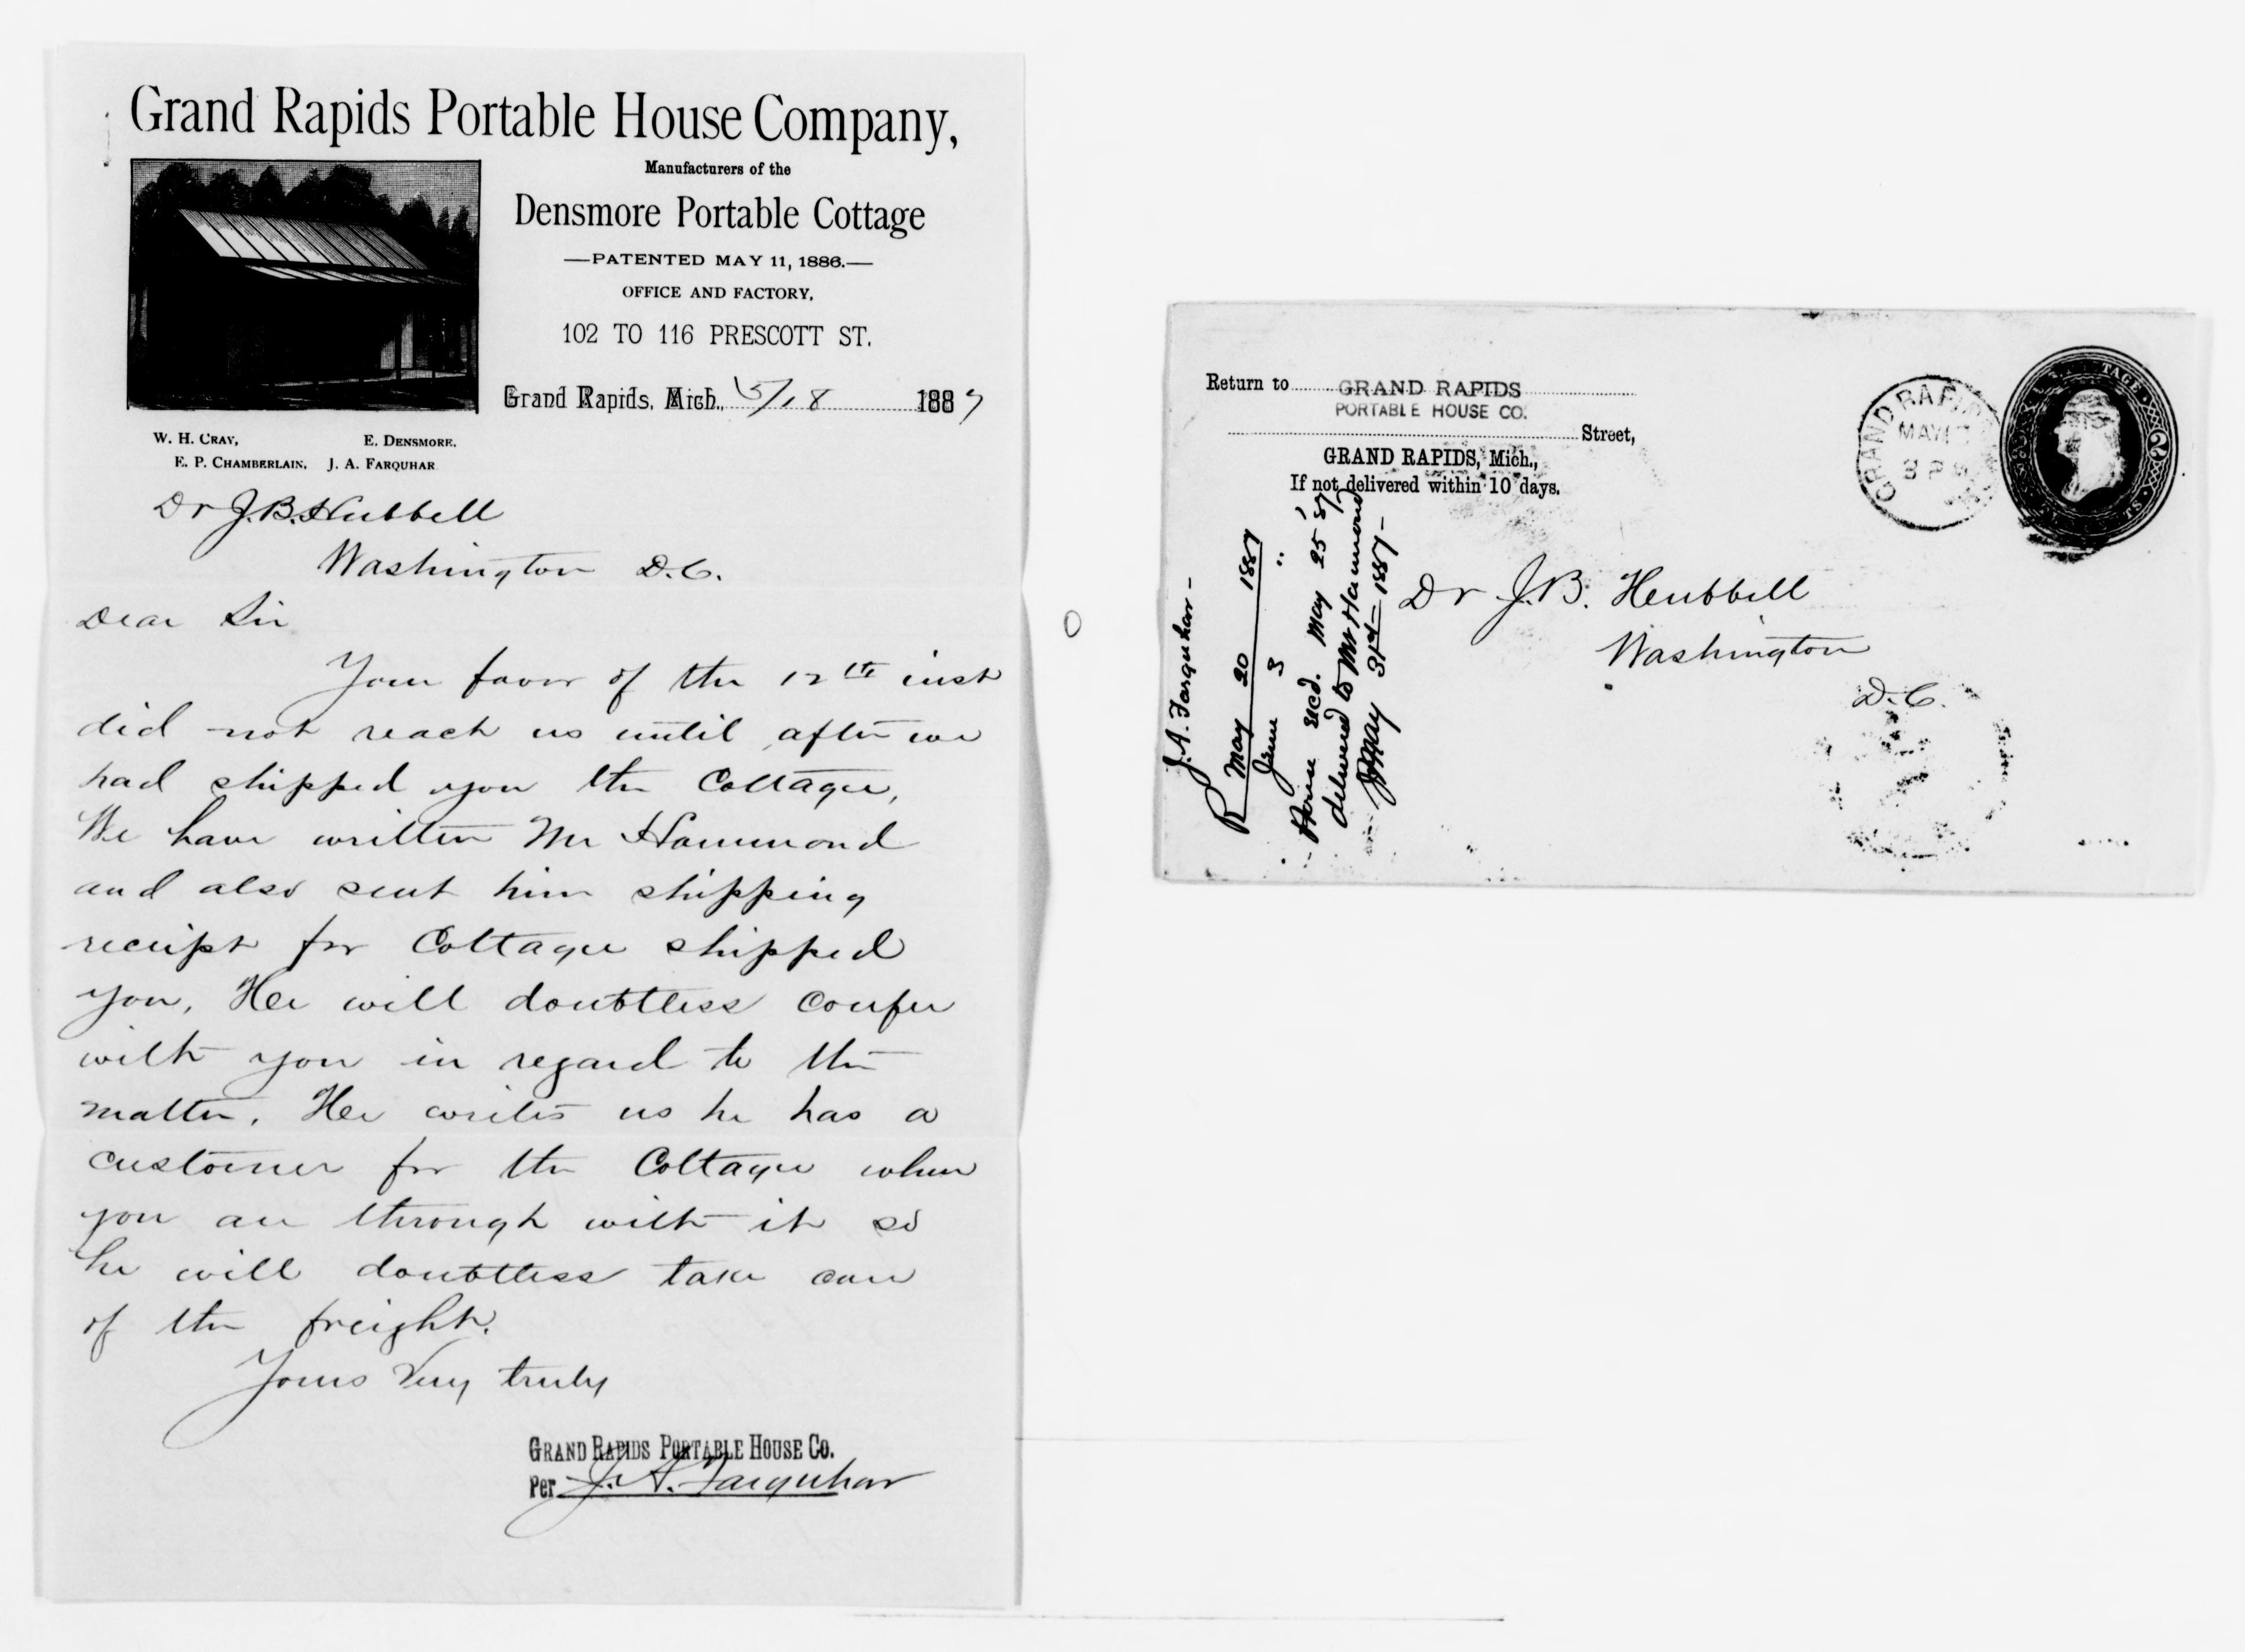 Grand Rapids Portable House Company,
Manufacturers of the
Densmore Portable Cottage
—PATENTED MAY 11, 1886.—
OFFICE AND FACTORY,
102 TO 116 PRESCOTT ST.
Grand Rapids, Mich., 5/18 1887
W. H. CRAY, E. DENSMORE,
E. P. CHAMBERLAIN, J. A. FARQUHAR
Dr J. B. Hubbell
Washington D.C.
Dear Sir
Your favor of the 12th inst
did not reach us until after we
had shipped you the Cottage,
We have written Mr Hammond
and also sent him shipping
receipt for Cottage shipped
you, He will doubtless confer
with you in regard to the
matter. He writes us he has a
customer for the Cottage when
you are through with it so
he will doubtless take care
of the freight.
Yours Very truly
GRAND RAPIDS PORTABLE HOUSE CO.
Per J. A. Farquhar
Return to GRAND RAPIDS
PORTABLE HOUSE CO.
Street,
GRAND RAPIDS, Mich.,
If not delivered within 10 days.
GRAND RAPIDS
MAY
3 P
2
Dr J. B. Hubbell
Washington
D.C.
J. A. Farquhar -
R May 20 1887
June 3 "
House recd. May 25 '87
delivered to Mr Hammond
May 31st 1887 -